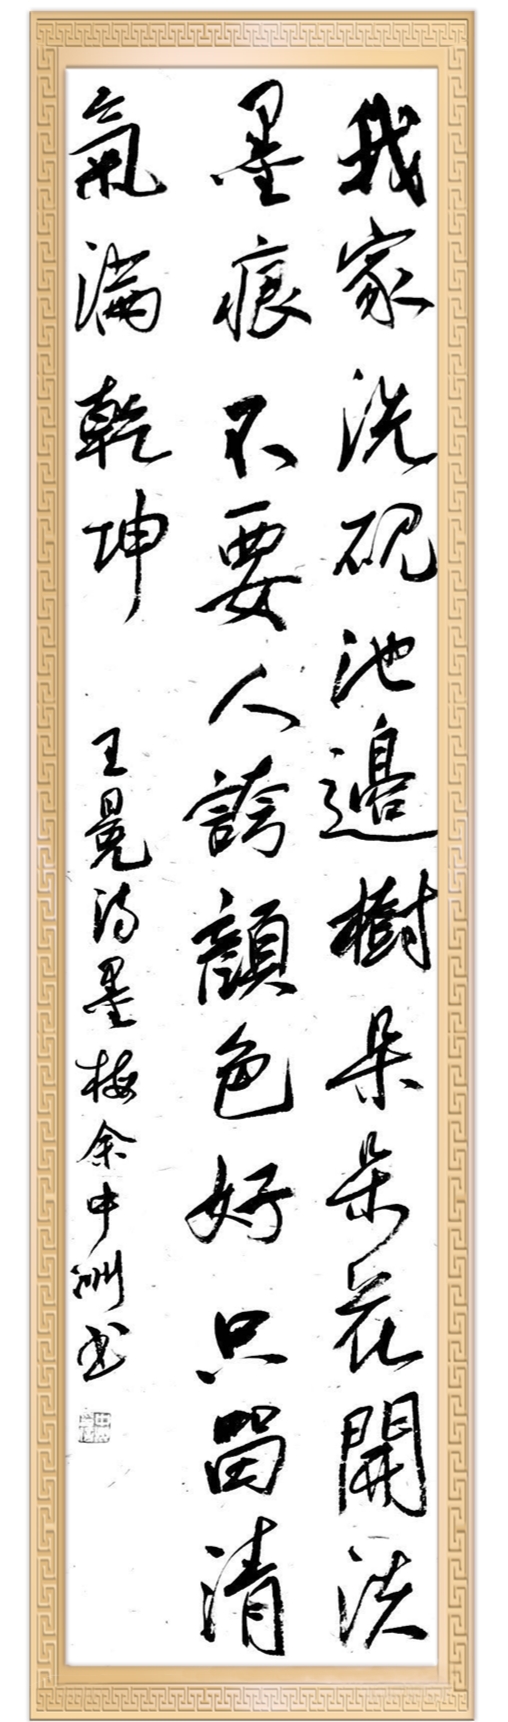 我家洗硯池邊樹朵朵花開淡
墨痕不要人誇顏色好只留清
氣滿乾坤
王冕詩墨梅余中洲书